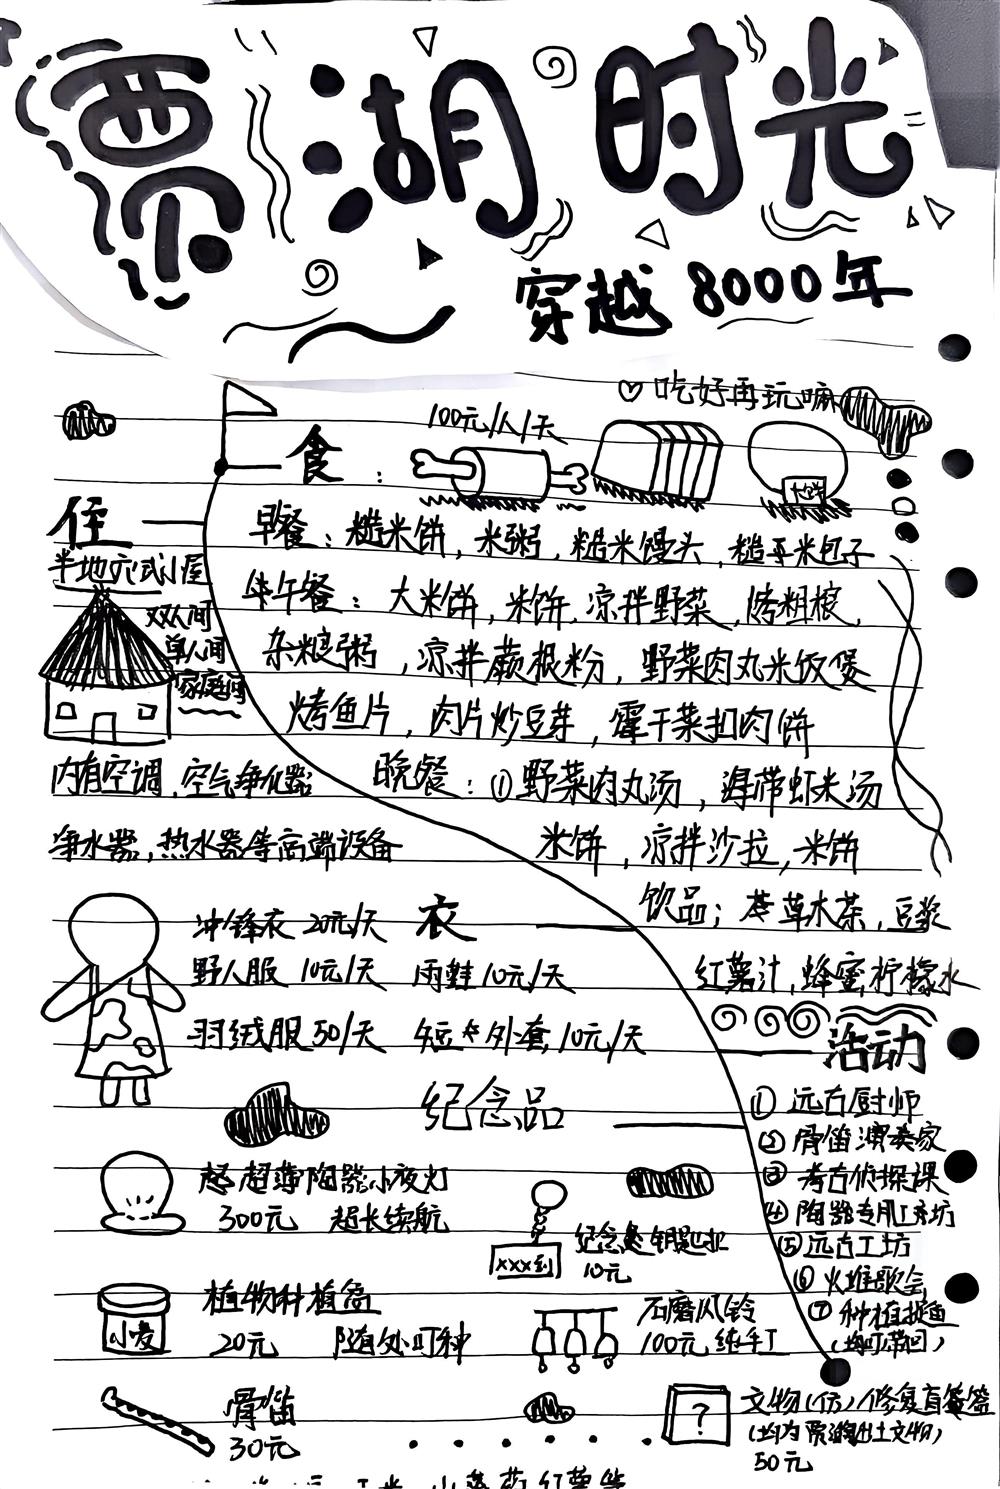 贾湖时光
穿越8000年
♡吃好再玩嘛
100元/人/天
食：
大饼
早餐：糙米饼，米粥，糙米馒头，糙米包子
午餐：大米饼，米饼，凉拌野菜，烤粗粮，
杂粮粥，凉拌蕨根粉，野菜肉丸米饭煲
烤鱼片，肉片炒豆芽，霉干菜扣肉饼
晚餐：①野菜肉丸汤，海带虾米汤
米饼，凉拌沙拉，米饼
饮品；茶草木茶，豆浆
红薯汁，蜂蜜柠檬水
住
半地穴式小屋
双人间
单人间
家庭间
内有空调，空气净化器
净水器，热水器等高端设备
衣
冲锋衣 20元/天
野人服 10元/天 雨鞋10元/天
羽绒服50/天 短外套10元/天
活动
① 远古厨师
② 骨笛演奏家
③ 考古侦探课
④ 陶器专属工坊
⑤ 远古工坊
⑥ 火堆歌会
⑦ 种植捉鱼
（均可带回）
纪念品
超薄陶器小夜灯
300元 超长续航
xxx到
纪念钥匙扣
10元
小麦
植物种植盒
20元 随处可种
石磨风铃
100元 纯手工
骨笛
30元
?
文物（仿）修复盲盒
（均为贾湖出土文物）
50元